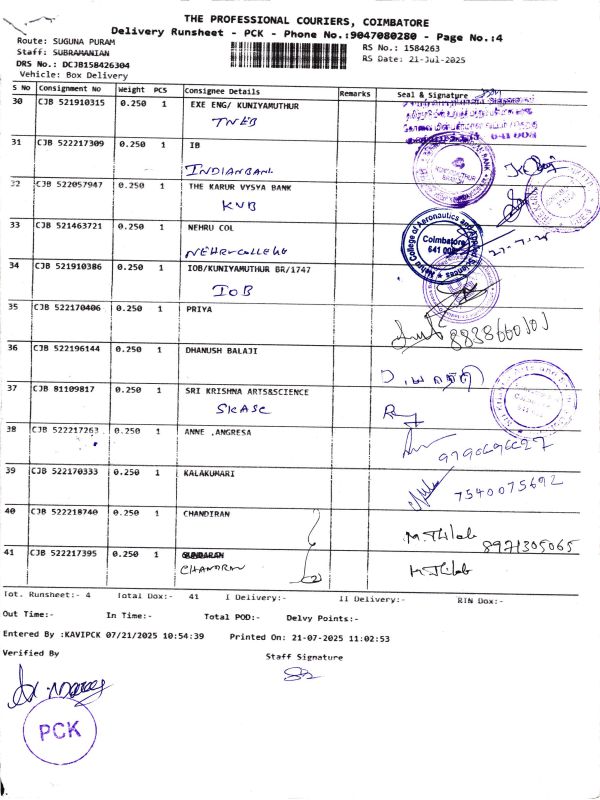 THE PROFESSIONAL COURIERS, COIMBATORE
Delivery Runsheet - PCK - Phone No.:9047080280 - Page No.:4
Route: SUGUNA PURAM
RS No.: 1584263
Staff: SUBRAMANIAN
RS Date: 21-Jul-2025
DRS No.: DCJB158426304
Vehicle: Box Delivery
S No Consignment No Weight PCS Consignee Details Remarks Seal & Signature
30 CJB 521910315 0.250 1 EXE ENG/ KUNIYAMUTHUR
TNEB
31 CJB 522217309 0.250 1 IB
INDIANBANK
32 CJB 522057947 0.250 1 THE KARUR VYSYA BANK
KVB
33 CJB 521463721 0.250 1 NEHRU COL
NEHRU COLLEGE
Nehru College of Aeronautics and Applied Sciences
Coimbatore
34 CJB 521910386 0.250 1 IOB/KUNIYAMUTHUR BR/1747
IOB
35 CJB 522170406 0.250 1 PRIYA
36 CJB 522196144 0.250 1 DHANUSH BALAJI
37 CJB 81109817 0.250 1 SRI KRISHNA ARTS&SCIENCE
SKASC
38 CJB 522217263 0.250 1 ANNE .ANGRESA
39 CJB 522170333 0.250 1 KALAKUMARI
7540075692
40 CJB 522218740 0.250 1 CHANDIRAN
M.Thilab 8971305065
41 CJB 522217395 0.250 1
CHANDRAN M.Thilab
Tot. Runsheet:- 4 Total Dox:- 41 I Delivery:- II Delivery:- RTN Dox:-
Out Time:- In Time:- Total POD:- Delvy Points:-
Entered By :KAVIPCK 07/21/2025 10:54:39 Printed On: 21-07-2025 11:02:53
Verified By Staff Signature
PCK